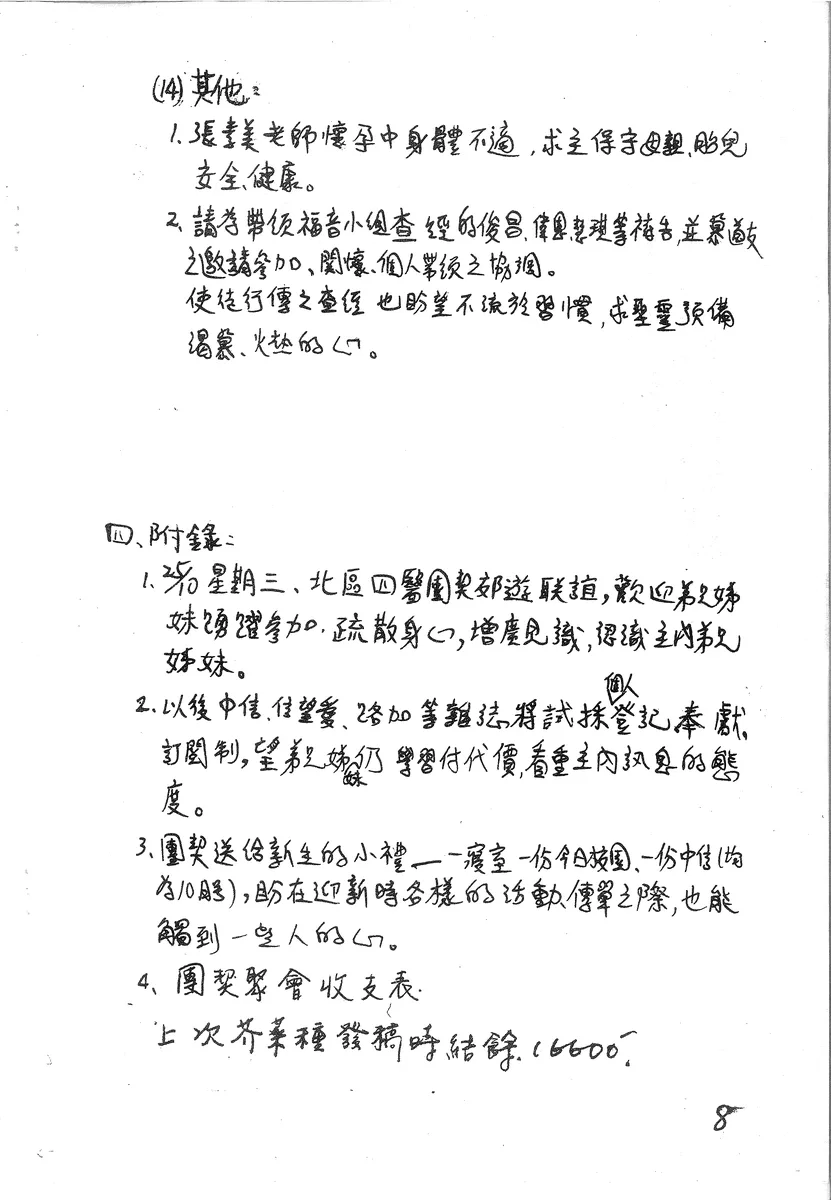 (14) 其他:
1. 張孝美老師懷孕中身體不適,求主保守母親、胎兒
安全、健康。
2. 請為帶領福音小組查經的俊昌、偉恩、慧琪等禱告,並慕道友
之邀請參加、關懷、個人帶領之協調。
使徒行傳之查經也盼望不流於習慣,求聖靈預備
渴慕、火熱的心。
四、附錄:
1. 25/10 星期三、北區四醫團契郊遊聯誼,歡迎弟兄姊
妹踴躍參加.疏散身心,增廣見識,認識主內弟兄
姊妹。
2. 以後中信、佳望愛、路加等雜誌將試採個人登記奉獻
訂閱制,望弟兄姊妹仍學習付代價,看重主內訊息的態
度。
3. 團契送給新生的小禮——一寢室一份今日校園、一份中信(均
為10月),盼在迎新時各樣的活動、傳單之際,也能
觸到一些人的心。
4、團契聚會收支表.
上次芥菜種發稿時結餘.16600
8